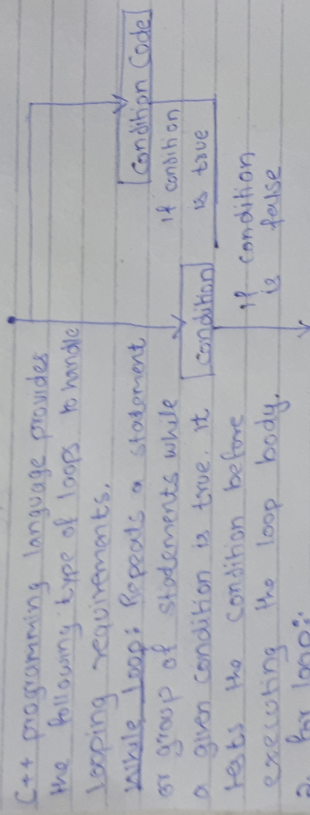 C++ programming language provides
the following type of loops to handle
looping requirements.
While loop: Repeats a statement
or group of statements while
a given condition is true. it
tests the condition before
executing the loop body.
2. for loop:
condition
Condition Code
if condition
is true
If condition
is false